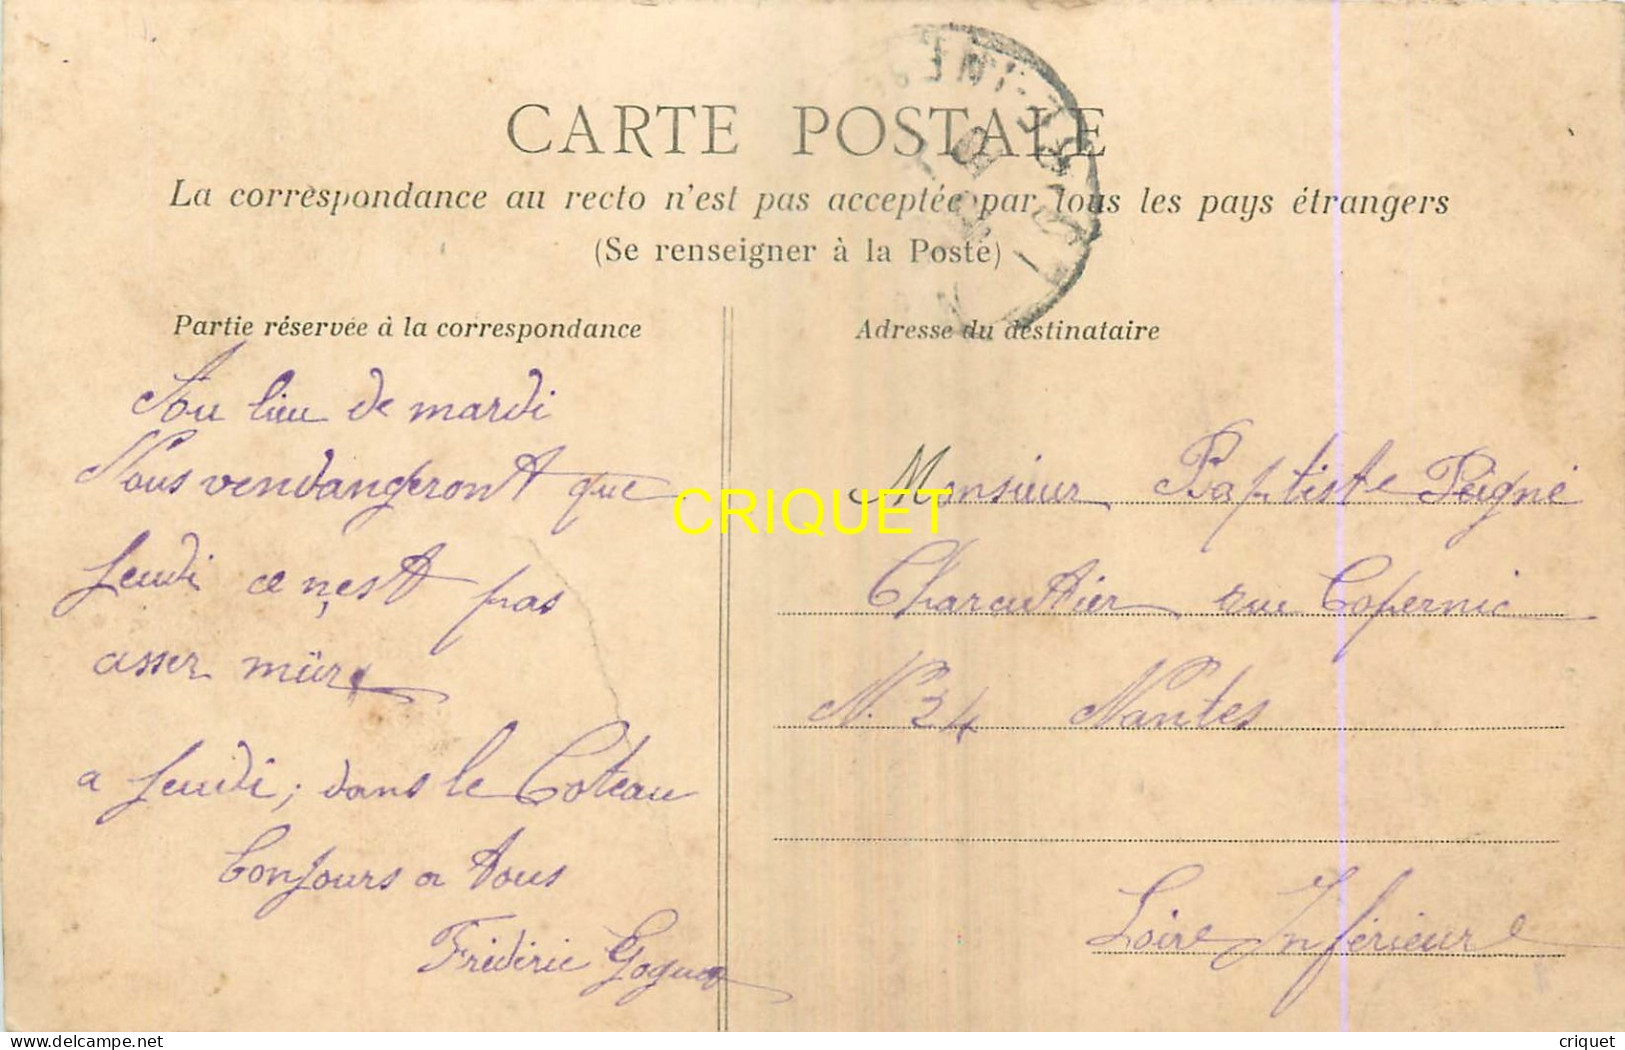 CARTE POSTALE
La correspondance au recto n'est pas acceptée par tous les pays étrangers
(Se renseigner à la Poste)
Partie réservée à la correspondance
Adresse du destinataire
Au lieu de mardi
Nous vendangeront que
Jeudi ce n'est pas
asser mûr
a Jeudi, dans le Coteau
bonjours a tous
Frédéric
Monsieur Baptiste Peigné
Charcutier rue Copernic
N. 24 Nantes
Loire Inférieure
CRIQUET
delcampe.net
criquet